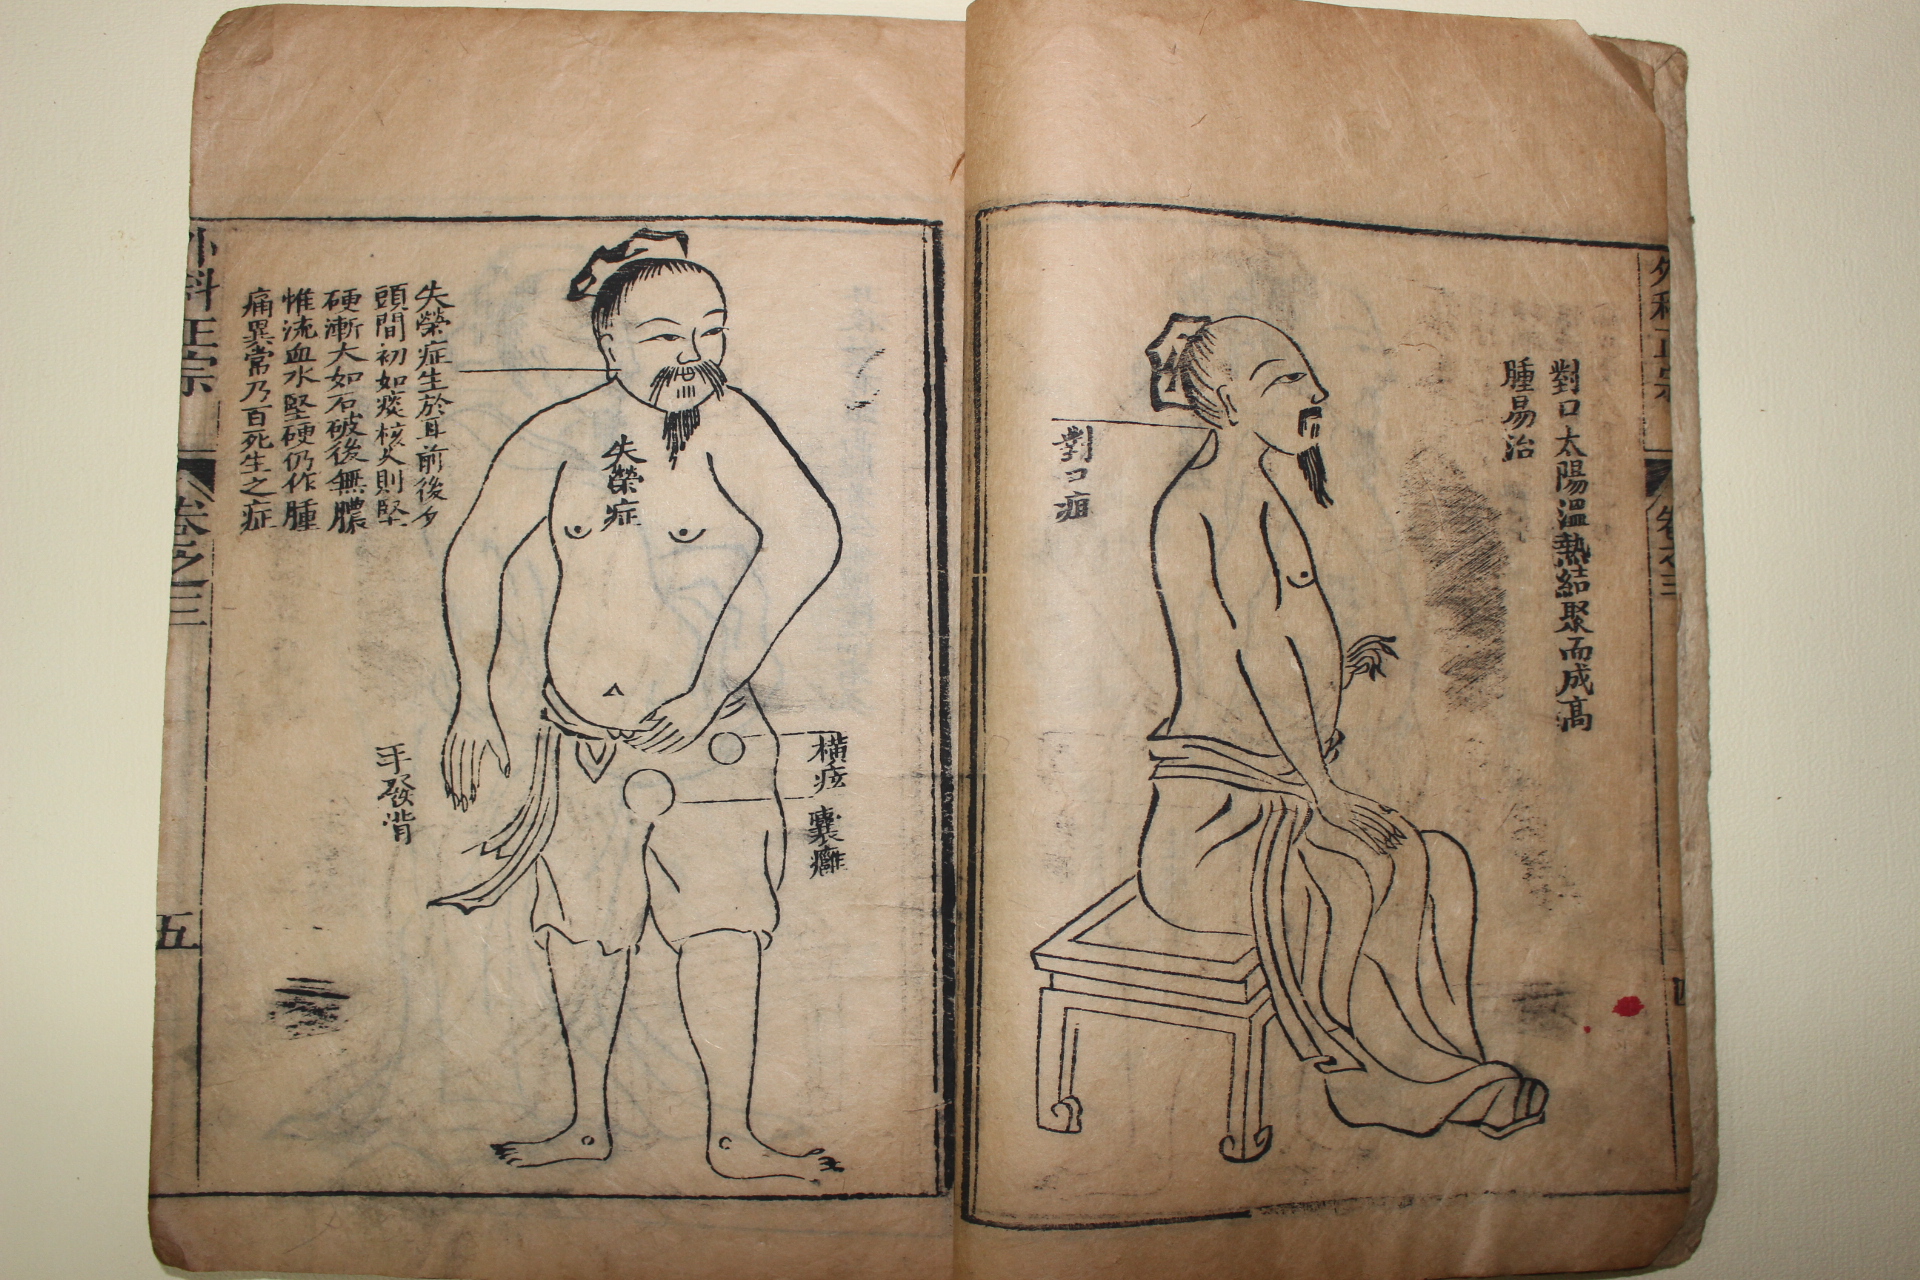 外科正宗
卷之三
對口太陽溫熱結聚而成高
腫易治
對口疽
橫痃
囊癰
失榮症
失榮症生於耳前後夕
頭間初如痰核久則堅
硬漸大如石破後無膿
惟流血水堅硬仍作腫
痛異常乃百死生之症
手發背
外科正宗
卷之三
五